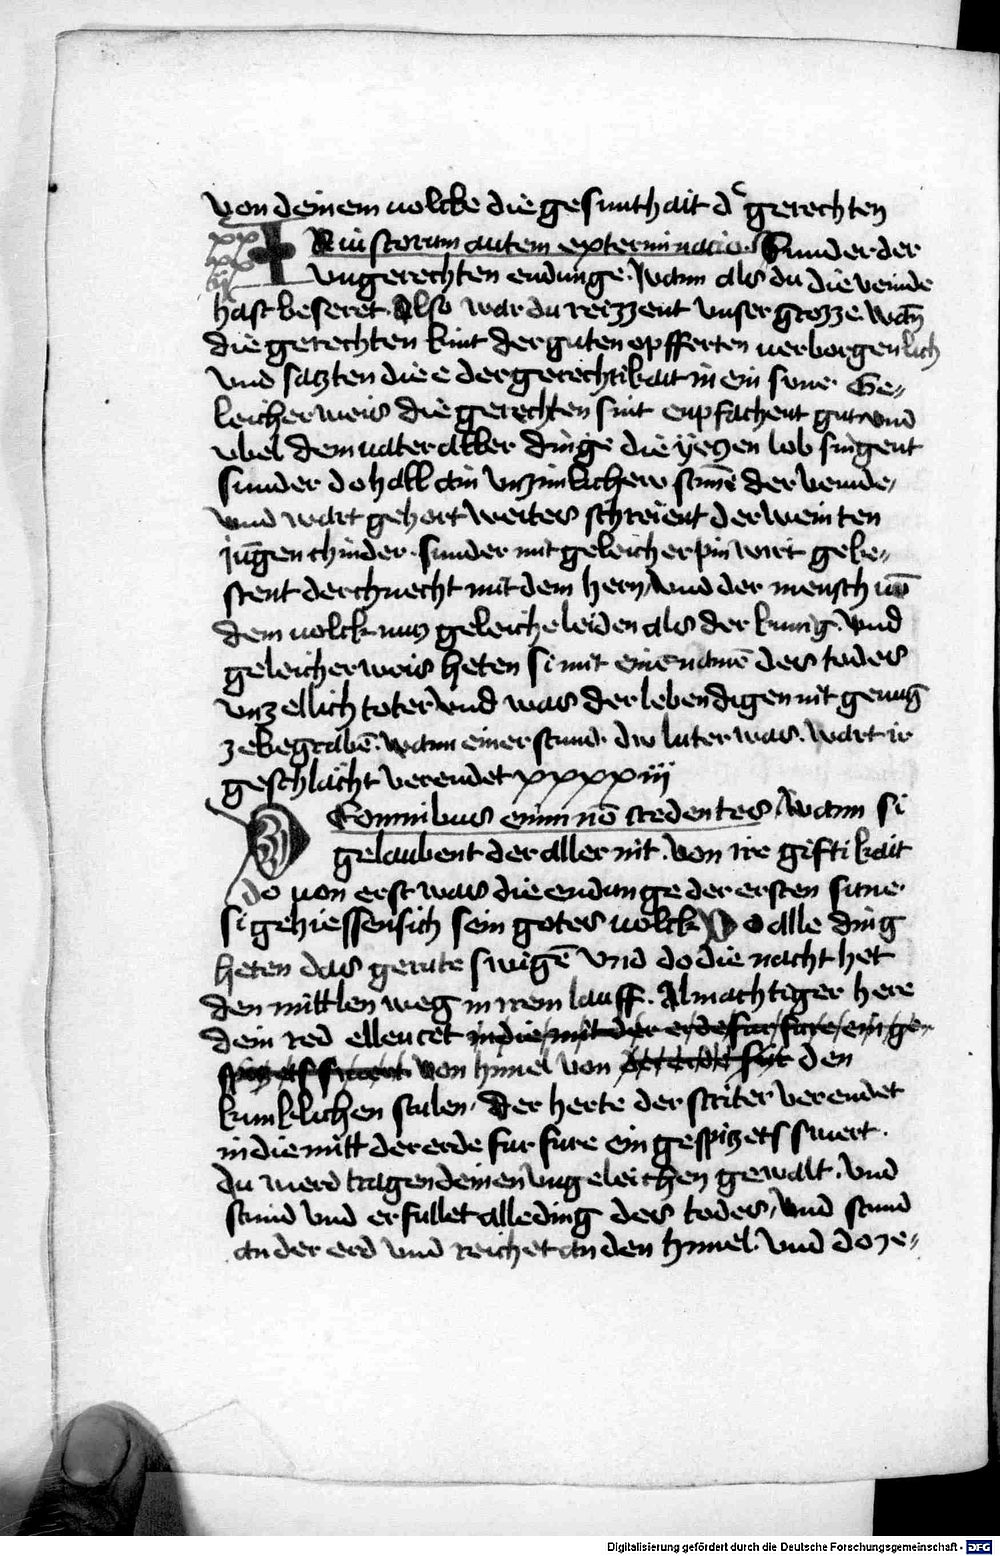 von deinem uolcke die gesunthait d͛ gerechten
xx xx iij INiustorum autem exterminacio. Sunder der
vngerechten endunge. wann als du die veinde
hast beseret. Also war du reizzent vnser grozze. wan̄
die gerechten kint der guten opfferten uerborgenlich
vnd satzten die e der gerechtikait in ein sune. Ge„
leicherweis die gerechten sint enpfachent gut vnd
vbel dem uater aller dinge die yezen lob singent
sunder do hall ain vnzimlichew stim̄e der veinde„
vnd wart gehort weites schreient der weinten
iūgen chinder. sunder mit geleicher pin wirt gebe„
stent der chnecht mit dem hern, vnd der mensch uō
dem uolck mus geleiche leiden als der kunig. vnd
geleicherweis heten si mit einē namē des todes
vnzellich toter vnd was der lebendigen nit genug
zebegrabē. wann einer stund. dw luter was. wart ir
geschlächt verendet xxxx iij
DEomnibus enim nō credentes. wann si
gelaubent der aller nit. von ire giftikait
do uon erst was die endunge der ersten sune.
si gehiessen sich sein gotes uolck Do alle ding
heten das gerute swigē vnd do die nacht het
den mittlen weg in irem lauff. Almachtiger here
dein red elleucet in die mit der erde fur fure ein ge„
spizets swert. von himel von den
kunklichen stulen. der herte der striter verendet
in die mitt der erde fur fure ein gespitzets swert.
du werd tragen deinen vngeleichen gewalt. vnd
stund vnd erfullet alle ding des todes, vnd stund
an der erd vnd reichet an den himel. vnd do ze„
Digitalisierung gefördert durch die Deutsche Forschungsgemeinschaft - DFG